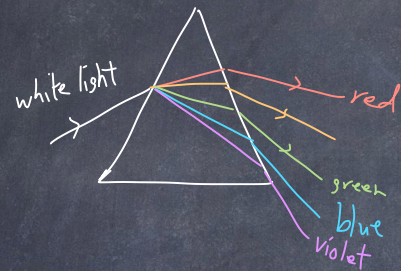 white light
red
green
blue
violet